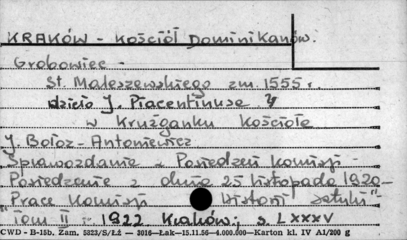 KRAKÓW - Kościół Dominikanów.
Grobowiec -
St. Madeszewskiego zm. 1555 r.
dzieło J. Piacentinuse
w Krużganku Kościoła
J. Bołoz-Antoniewicz
Sprawozdanie z Posiedzeń Komisji -
Posiedzenie z dnia 25 listopada 1920 -
"Prace Komisji Historii Sztuki"
Tom II r. 1922. Kraków, s. LXXXV
CWD - B-15b, Zam. 5823/S/Łż — 3016—Łak—15.11.56—4.000.000—Karton kl. IV A1/200 g